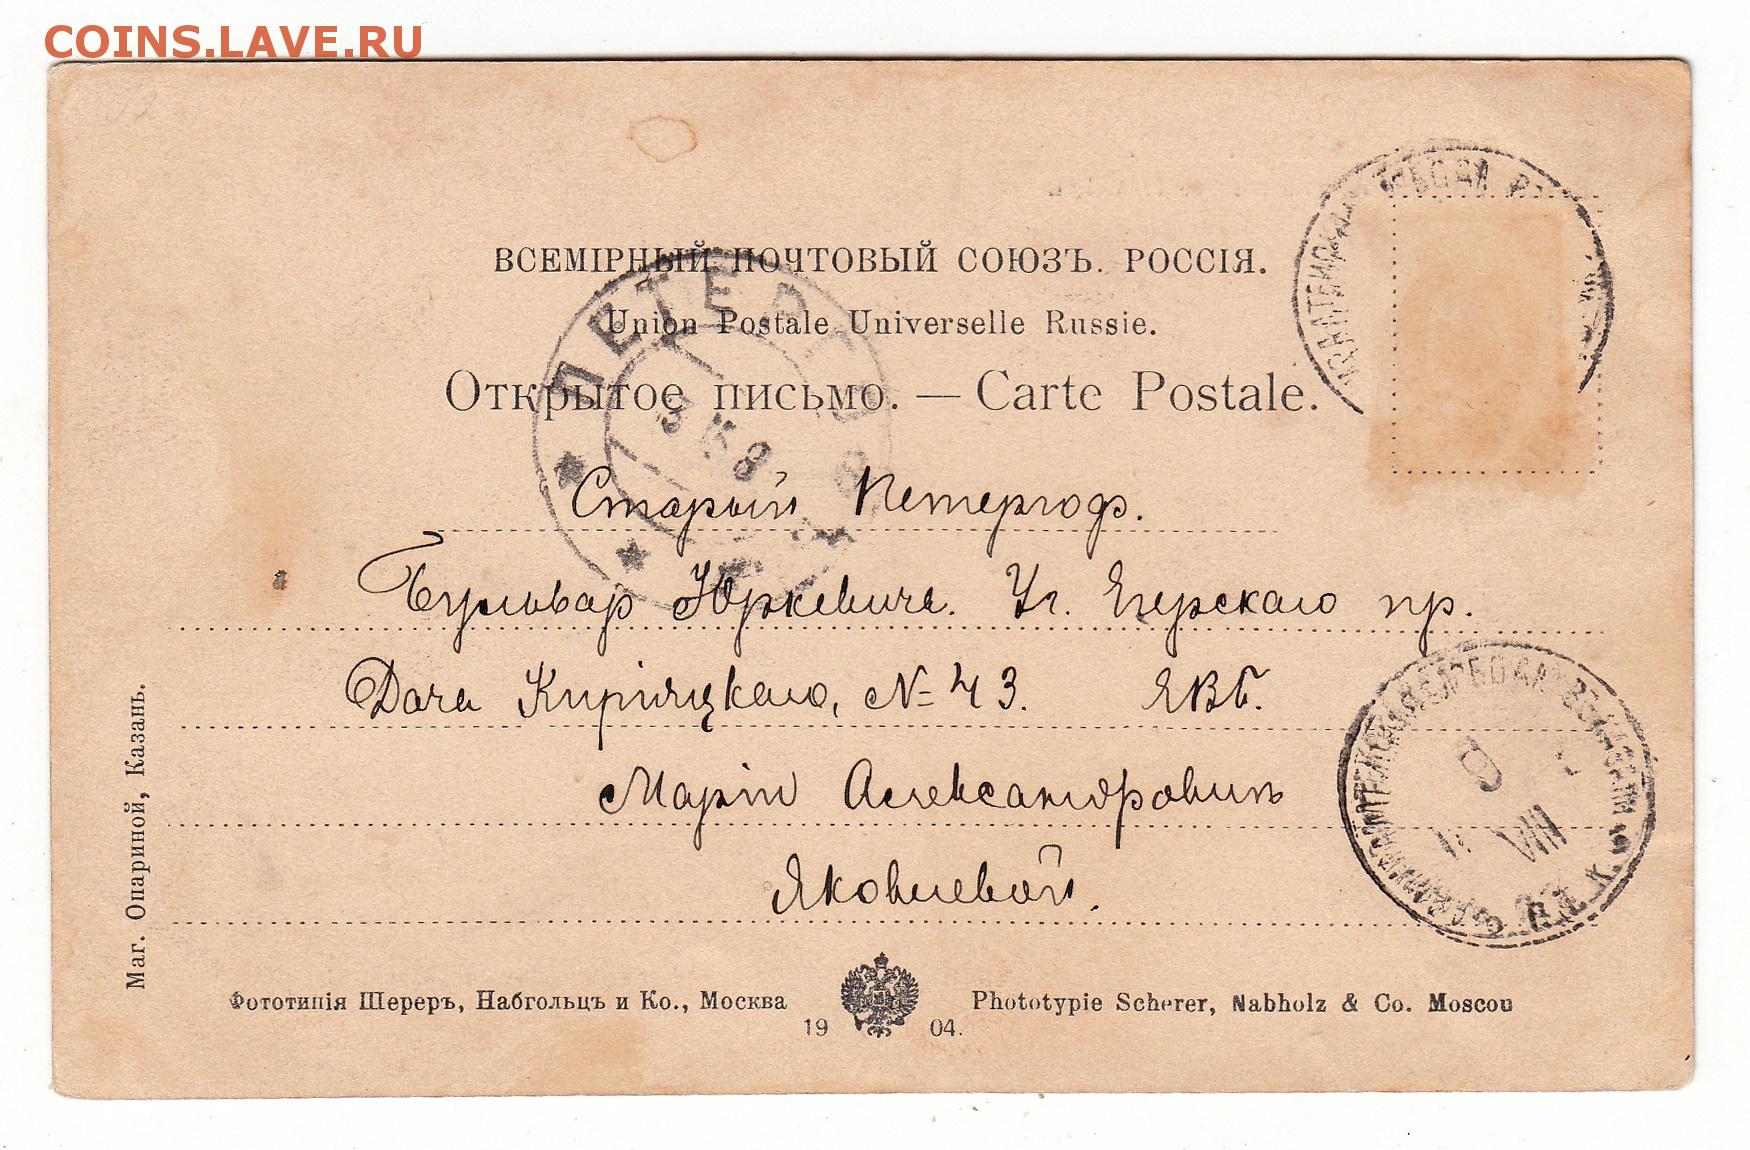 COINS.LAVE.RU
ВСЕМІРНЫЙ ПОЧТОВЫЙ СОЮЗЪ. РОССІЯ.
Union Postale Universelle Russie.
Открытое письмо. — Carte Postale.
Старый Петергоф.
Бульвар Юркевича. Уг. Егерскаго пр.
Дача Кирицкаго, № 43. ЯВБ.
Маріи Александровнѣ
Яковлевой.
Маг. Опариной, Казань.
Фототипія Шереръ, Набгольцъ и Ко., Москва
1904.
Phototypie Scherer, Nabholz & Co. Moscou